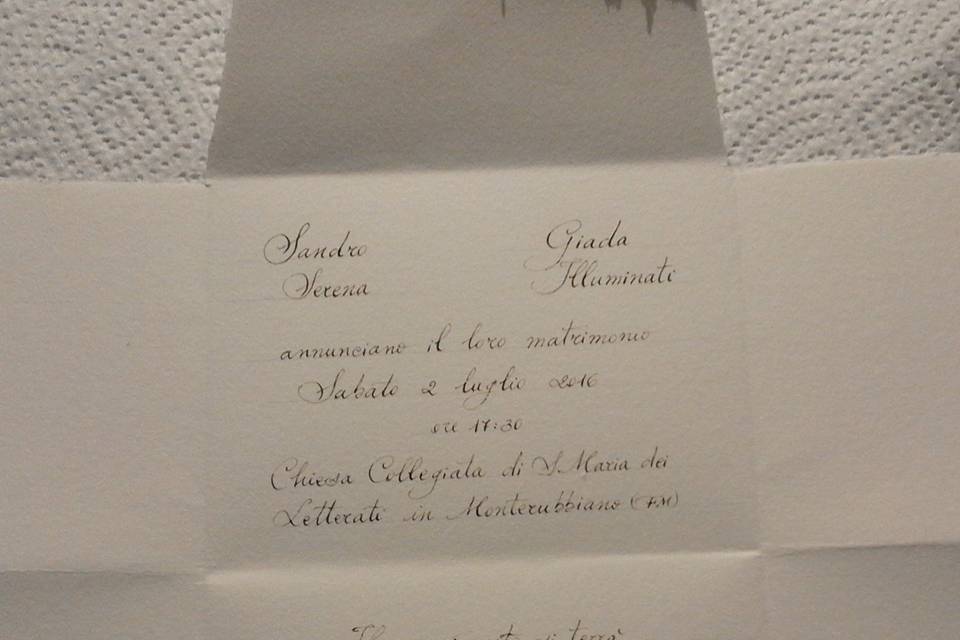 Sandro Giada
Serena Illuminati
annunciano il loro matrimonio
Sabato 2 luglio 2016
ore 17:30
Chiesa Collegiata di S.Maria dei
Letterati in Monterubbiano (FM)
si terrà